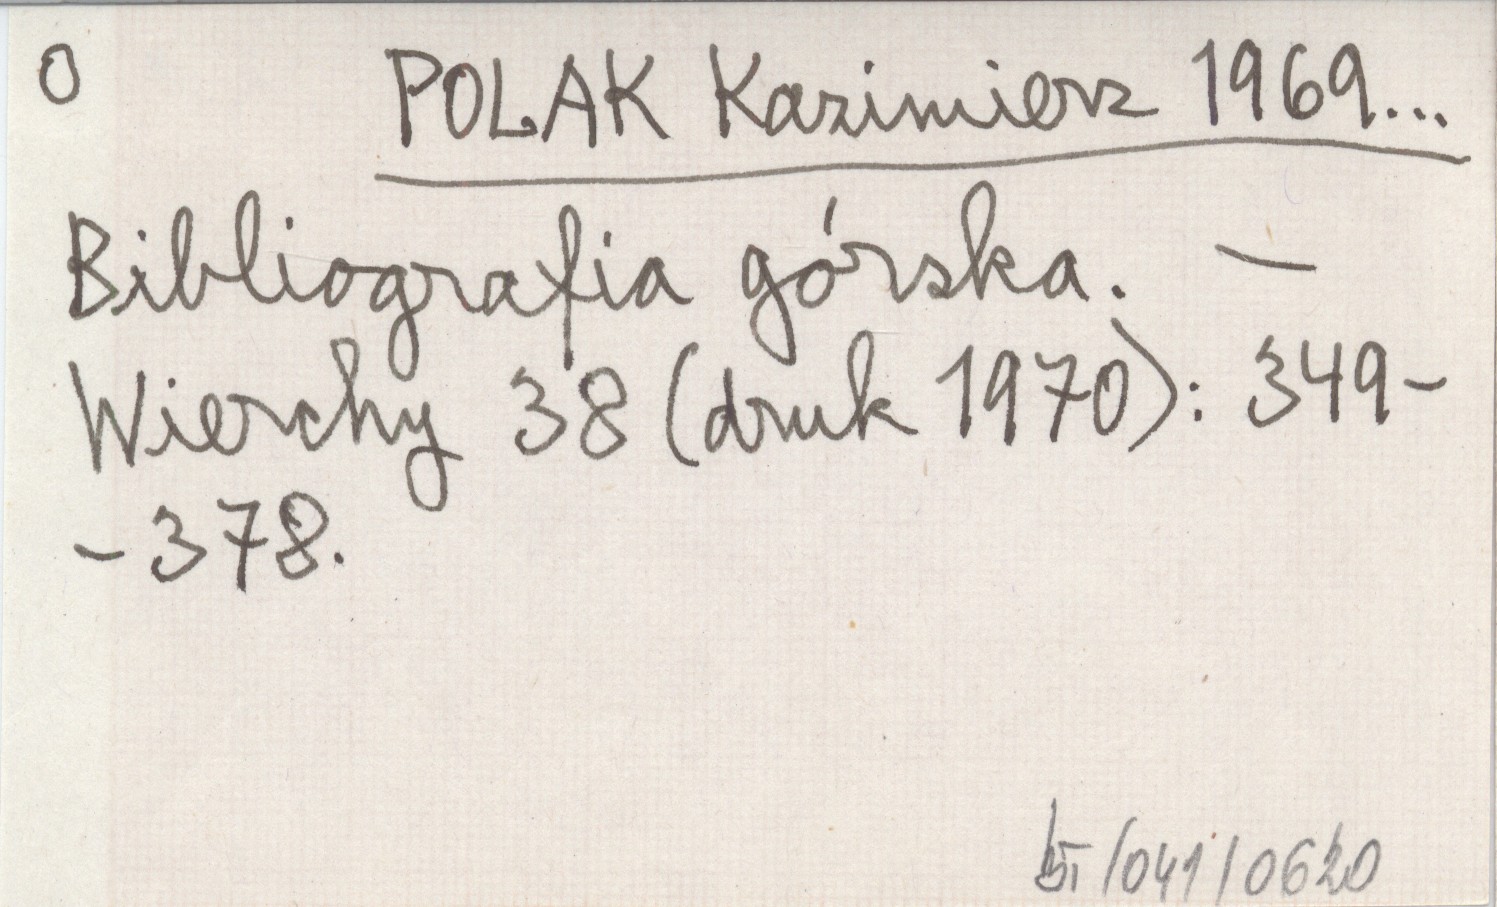 O
POLAK Kazimierz 1969...
Bibliografia górska. —
Wierchy 38 (druk 1970): 349-
- 378.
/041/0620